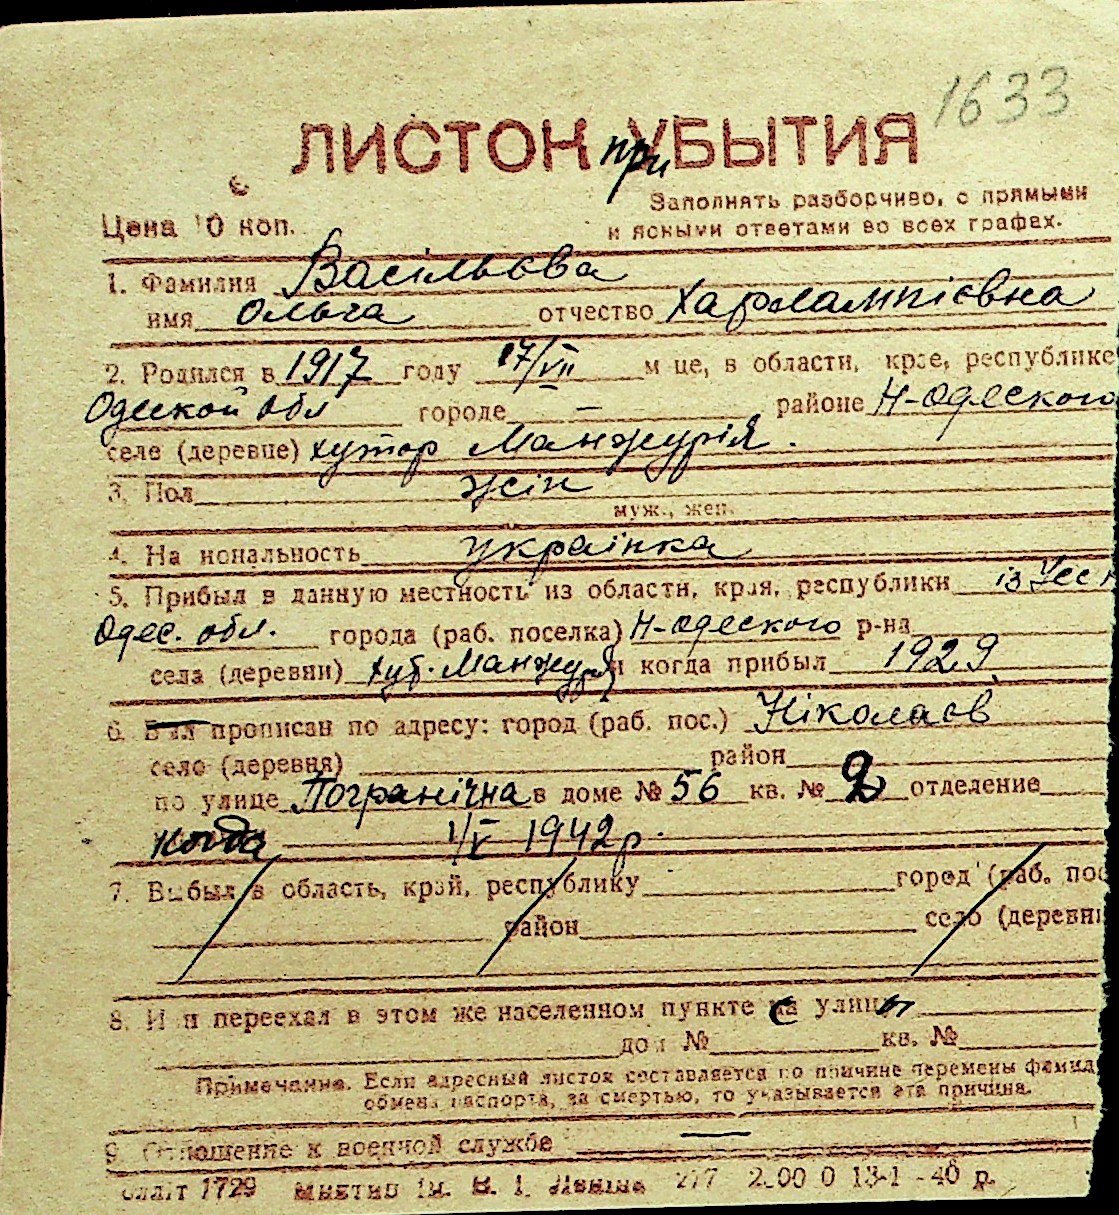 1633
ЛИСТОК при УБЫТИЯ
Заполнять разборчиво, с прямыми
Цена 10 коп. и ясными ответами во всех графах.
1. Фамилия Васільєва
имя Ольга отчество Харлампієвна
2. Родился в 1917 году 17/VII м це, в области, крае, республике
Одеской обл городе — районе Н-Одеского
селе (деревне) хутор Манжурія.
3. Пол жін
муж., жен.
4. На иональность українка
5. Прибыл в данную местность из области, края, республики із
Одес. обл. города (раб. поселка) Н-Одеского р-на
села (деревни) хут. Манжурія и когда прибыл 1929
6. Был прописан по адресу: город (раб. пос.) Ніколаєв
село (деревня) район
по улице Погранічна в доме № 56 кв. № 2 отделение
когда 1/V 1942 р.
7. Выбыл в область, край, республику город (раб. пос
район село (деревни
8. Или переехал в этом же населенном пункте с улицы
дом № кв. №
Примечание. Если адресный листок составляется по причине перемены фамил
обмена паспорта, за смертью, то указывается эта причина.
9. Отношение к военной службе —
1729 ім. В. І. Леніна 277 13-1-40 р.